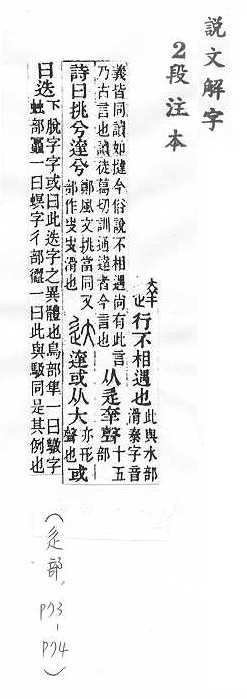 說文解字
2段注本
大羊
也
行不相遇也
此與水部
滑泰字音
義皆同讀如撻今俗說不相遇尚有此言
乃古言也讀徒葛切訓通達者今言也
从辵羍聲
十五
部
詩曰挑兮達兮
鄭風文挑當同又
部作㕞㕞滑也
达
達或从大
亦形
聲也
或
曰迭
下脫字字或曰此迭字之異體也鳥部隼一曰鷻字
部一曰螟字彳部一曰此與馺同是其例也
(辵部,P73-P74)